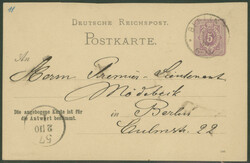 11
DEUTSCHE REICHSPOST.
POSTKARTE.
5
An
Herrn Premier-Lieutenant
Mödebeck
in Berlin
Culmstr. 22
Die angebogene Karte ist für
die Antwort bestimmt.